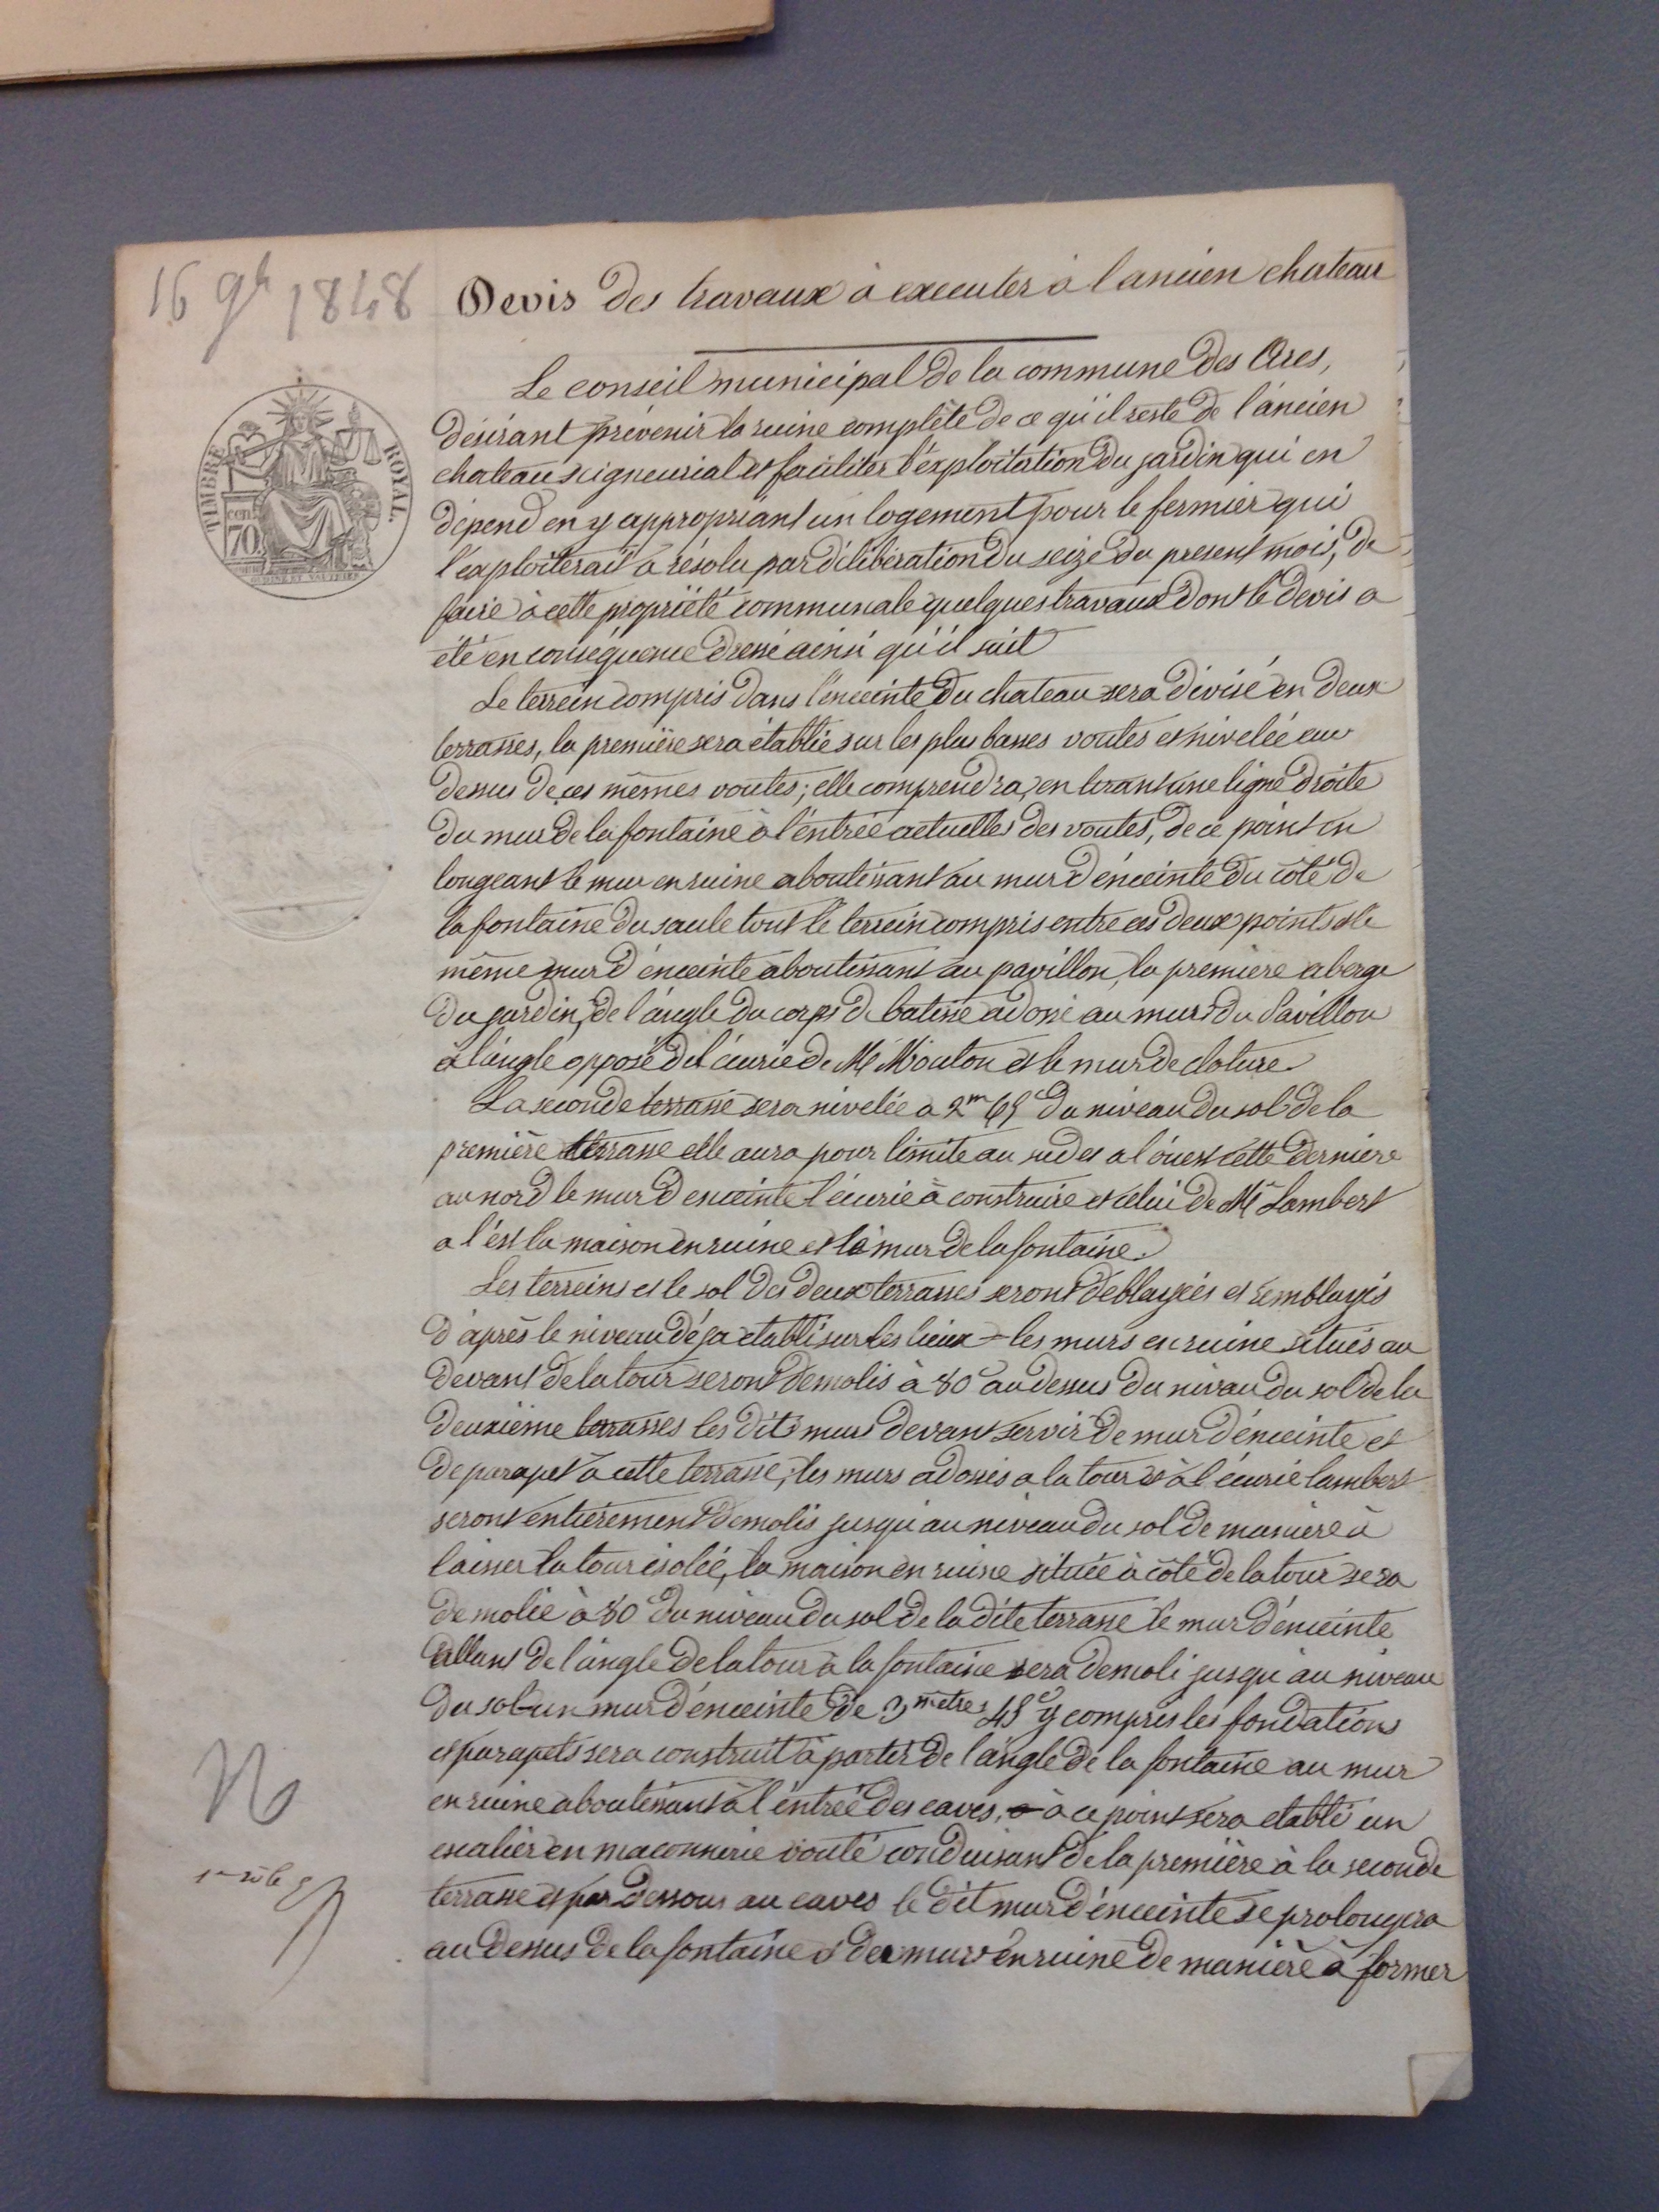 16 9b 1848
Devis des travaux à executer à l'ancien chateau
TIMBRE ROYAL.
cent 70
Le conseil municipal de la commune des Arcs,
désirant prévenir la ruine complète de ce qu'il reste de l'ancien
chateau seigneurial et faciliter l'éxploitation du jardin qui en
dépend en y appropriant un logement pour le fermier qui
l'exploiterait a résolu par délibération du seize du present mois, de
faire à cette propriété communale quelques travaux dont le devis a
été en conséquence dressé ainsi qu'il suit
Le terrein compris dans l'enceinte du chateau sera divisé en deux
terrasses, la première sera établie sur les plus basses voutes et nivelée au
dessus de ces mêmes voutes; elle comprendra, en tirant une ligne droite
du mur de la fontaine à l'éntrée actuelles des voutes, de ce point en
longeant le mur en ruine aboutissant au mur d'énceinte du côté de
la fontaine du saule tout le terrein compris entre ces deux points et le
même mur d'énceinte aboutissant au pavillon, la premiere aberge
du jardin, de l'angle du corps de batisse adossé au mur du Pavillon
à l'angle opposé de l'écurie de Mr Mouton et le mur de cloture.
La seconde terrasse sera nivelée a 2m 65c du niveau du sol de la
première terrasse elle aura pour limite au sud et a l'ouest cette derniere
au nord le mur d'enceinte l'écurie à construire et celui de Mr Lambert
a l'ést la maison en ruine et le mur de la fontaine.
Les terreins et le sol des deux terrasses seront déblayés et remblayés
d'après le niveau déja etabli sur les lieux = les murs en ruine situés au
devant de la tour seront demolis à 80c au dessus du niveau du sol de la
deuxième terrasses les dits murs devant servir de mur d'énceinte et
de parapet à cette terrasse; les murs adossés a la tour et à l'écurie lambert
seront entièrement demolis jusqu'au niveau du sol de manière à
laisser la tour isolée, la maison en ruine située à côté de la tour sera
demolie à 80c du niveau du sol de la dite terrasse le mur d'énceinte
allant de l'angle de la tour à la fontaine sera demoli jusqu'au niveau
du sol un mur d'énceinte de 3 mètres 45c y compris les fondations
et parapets sera construit à partir de l'angle de la fontaine au mur
en ruine aboutissant à l'entrée des caves, à ce point sera etabli un
escalier en maconnerie vouté conduisant de la première à la seconde
terrasse et par dessous au caves le dit mur d'énceinte se prolongera
au dessus de la fontaine et des murs en ruine de manière à former